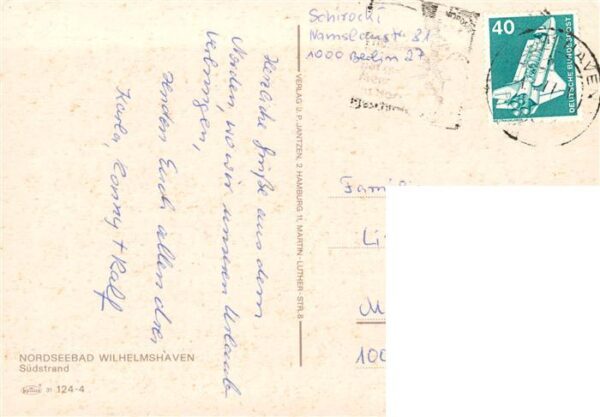 Schirocki
Namslaustr. 81
1000 Berlin 27
40
DEUTSCHE BUNDESPOST
HAVEN
Herzliche Grüße aus dem
Norden, wo wir unseren Urlaub
verbringen,
senden Euch allen drei
Karla, Conny + Ralf
VERLAG U. P. JANTZEN, 2 HAMBURG 11, MARTIN-LUTHER-STR. 8
Famili
Li
M
100
NORDSEEBAD WILHELMSHAVEN
Südstrand
31 124-4